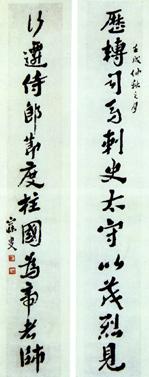 壬戌仲秋之月
歷轉司馬刺史太守以茂烈見
以遷侍郎節度柱國為帝者師